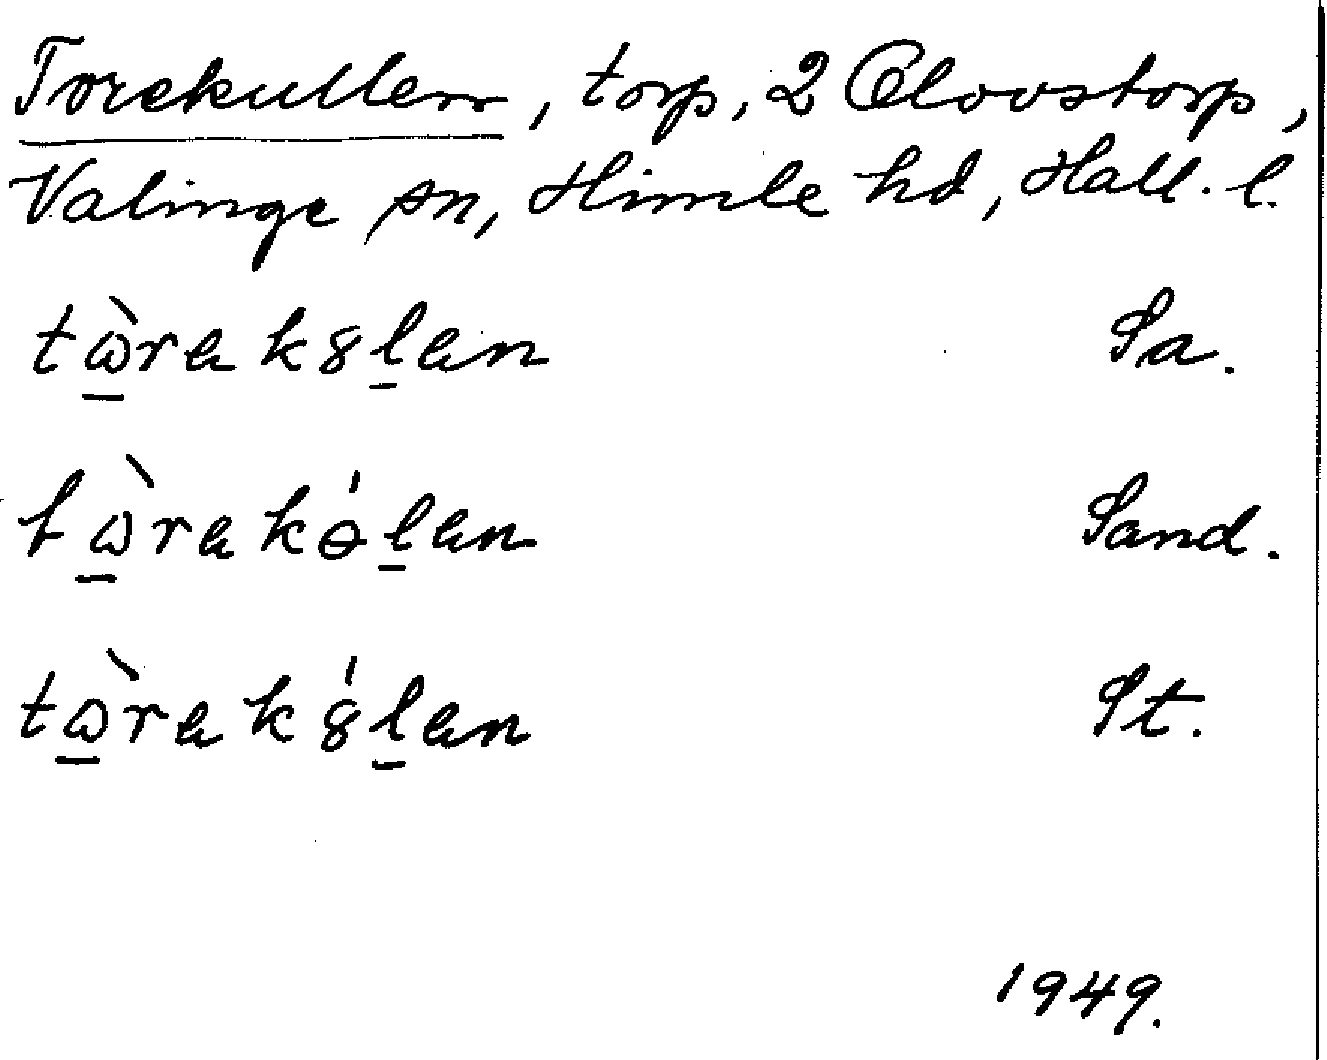 Torekullen, torp, 2 Olovstorp,
Valinge sn, Himle hd, Hall. l.
tὼ̱rak8ḻan Sa.
tὼ̱rakɵ́ḻan Sand.
tὼ̱rak8́ḻan St.
1949.